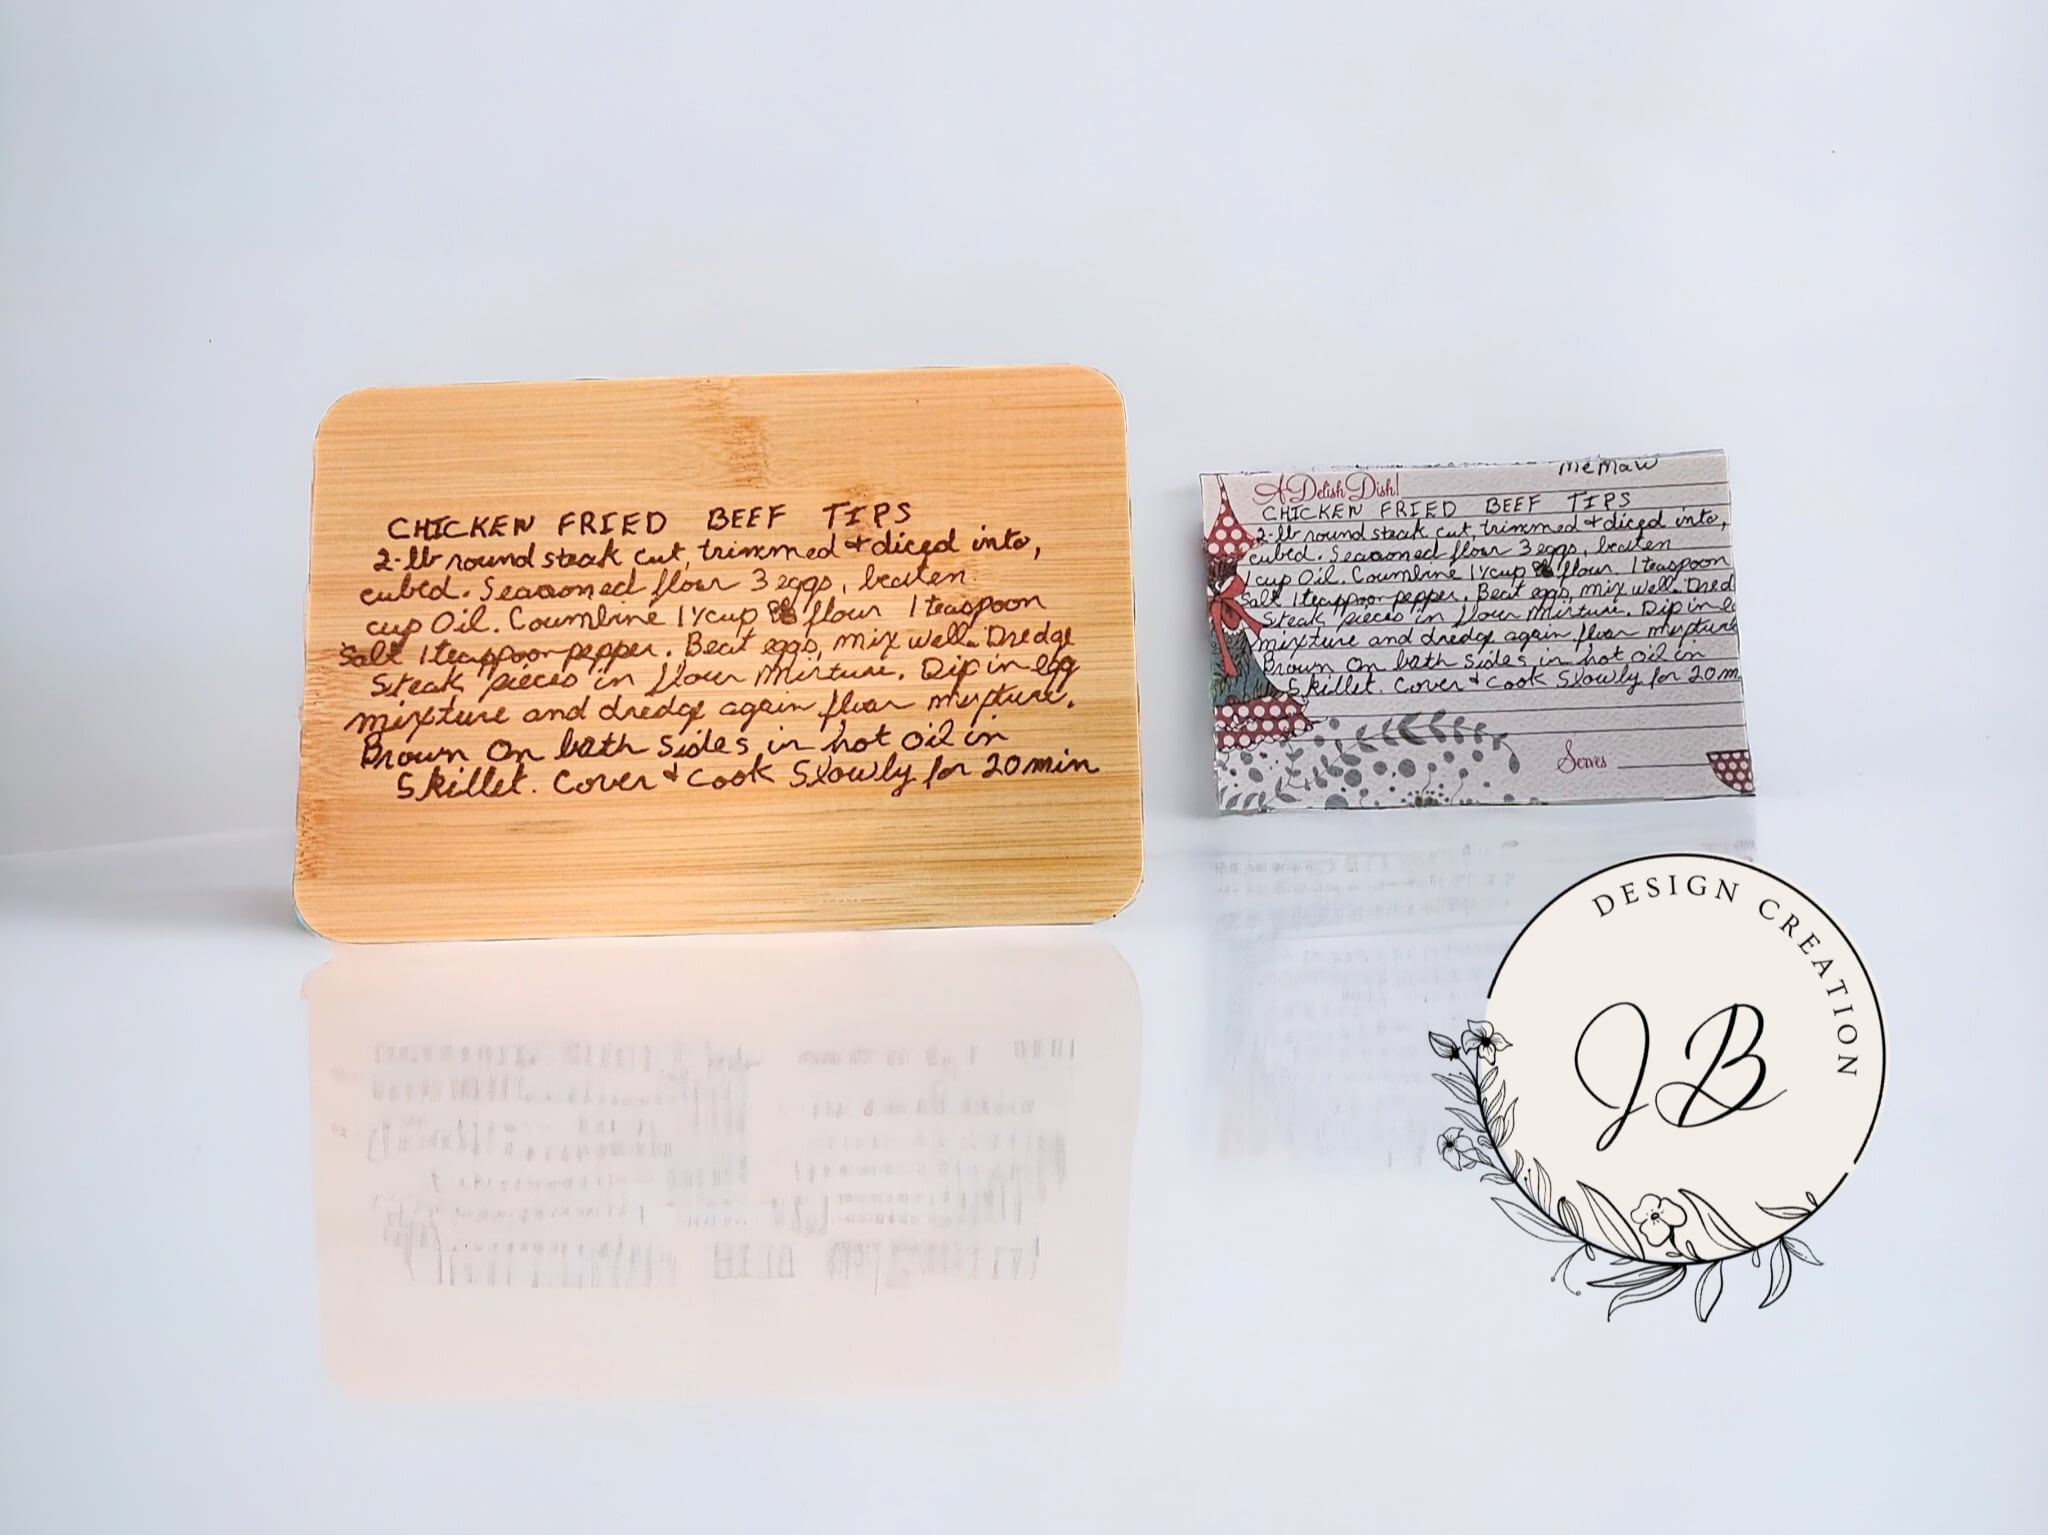 CHICKEN FRIED BEEF TIPS
2-lb round steak cut, trimmed & diced into,
cubed. Seasoned flour 3 eggs, beaten
cup Oil. Coumbine 1½cup flour 1 teaspoon
Salt 1teaspoon pepper. Beat eggs, mix well. Dredge
Steak pieces in flour Mixture. Dip in egg
mixture and dredge again flour mixture.
Brown On both sides in hot oil in
Skillet. Cover & Cook Slowly for 20 min
MeMaw
A Delish Dish!
CHICKEN FRIED BEEF TIPS
2-lb round steak cut, trimmed & diced into,
cubed. Seasoned flour 3 eggs, beaten
1 cup Oil. Coumbine 1½cup flour 1 teaspoon
Salt 1teaspoon pepper. Beat eggs, mix well. Dred
Steak pieces in flour Mixture. Dip in e
mixture and dredge again flour mixture
Brown On both sides in hot oil in
Skillet. Cover & Cook Slowly for 20 m
Serves
DESIGN CREATION
JB